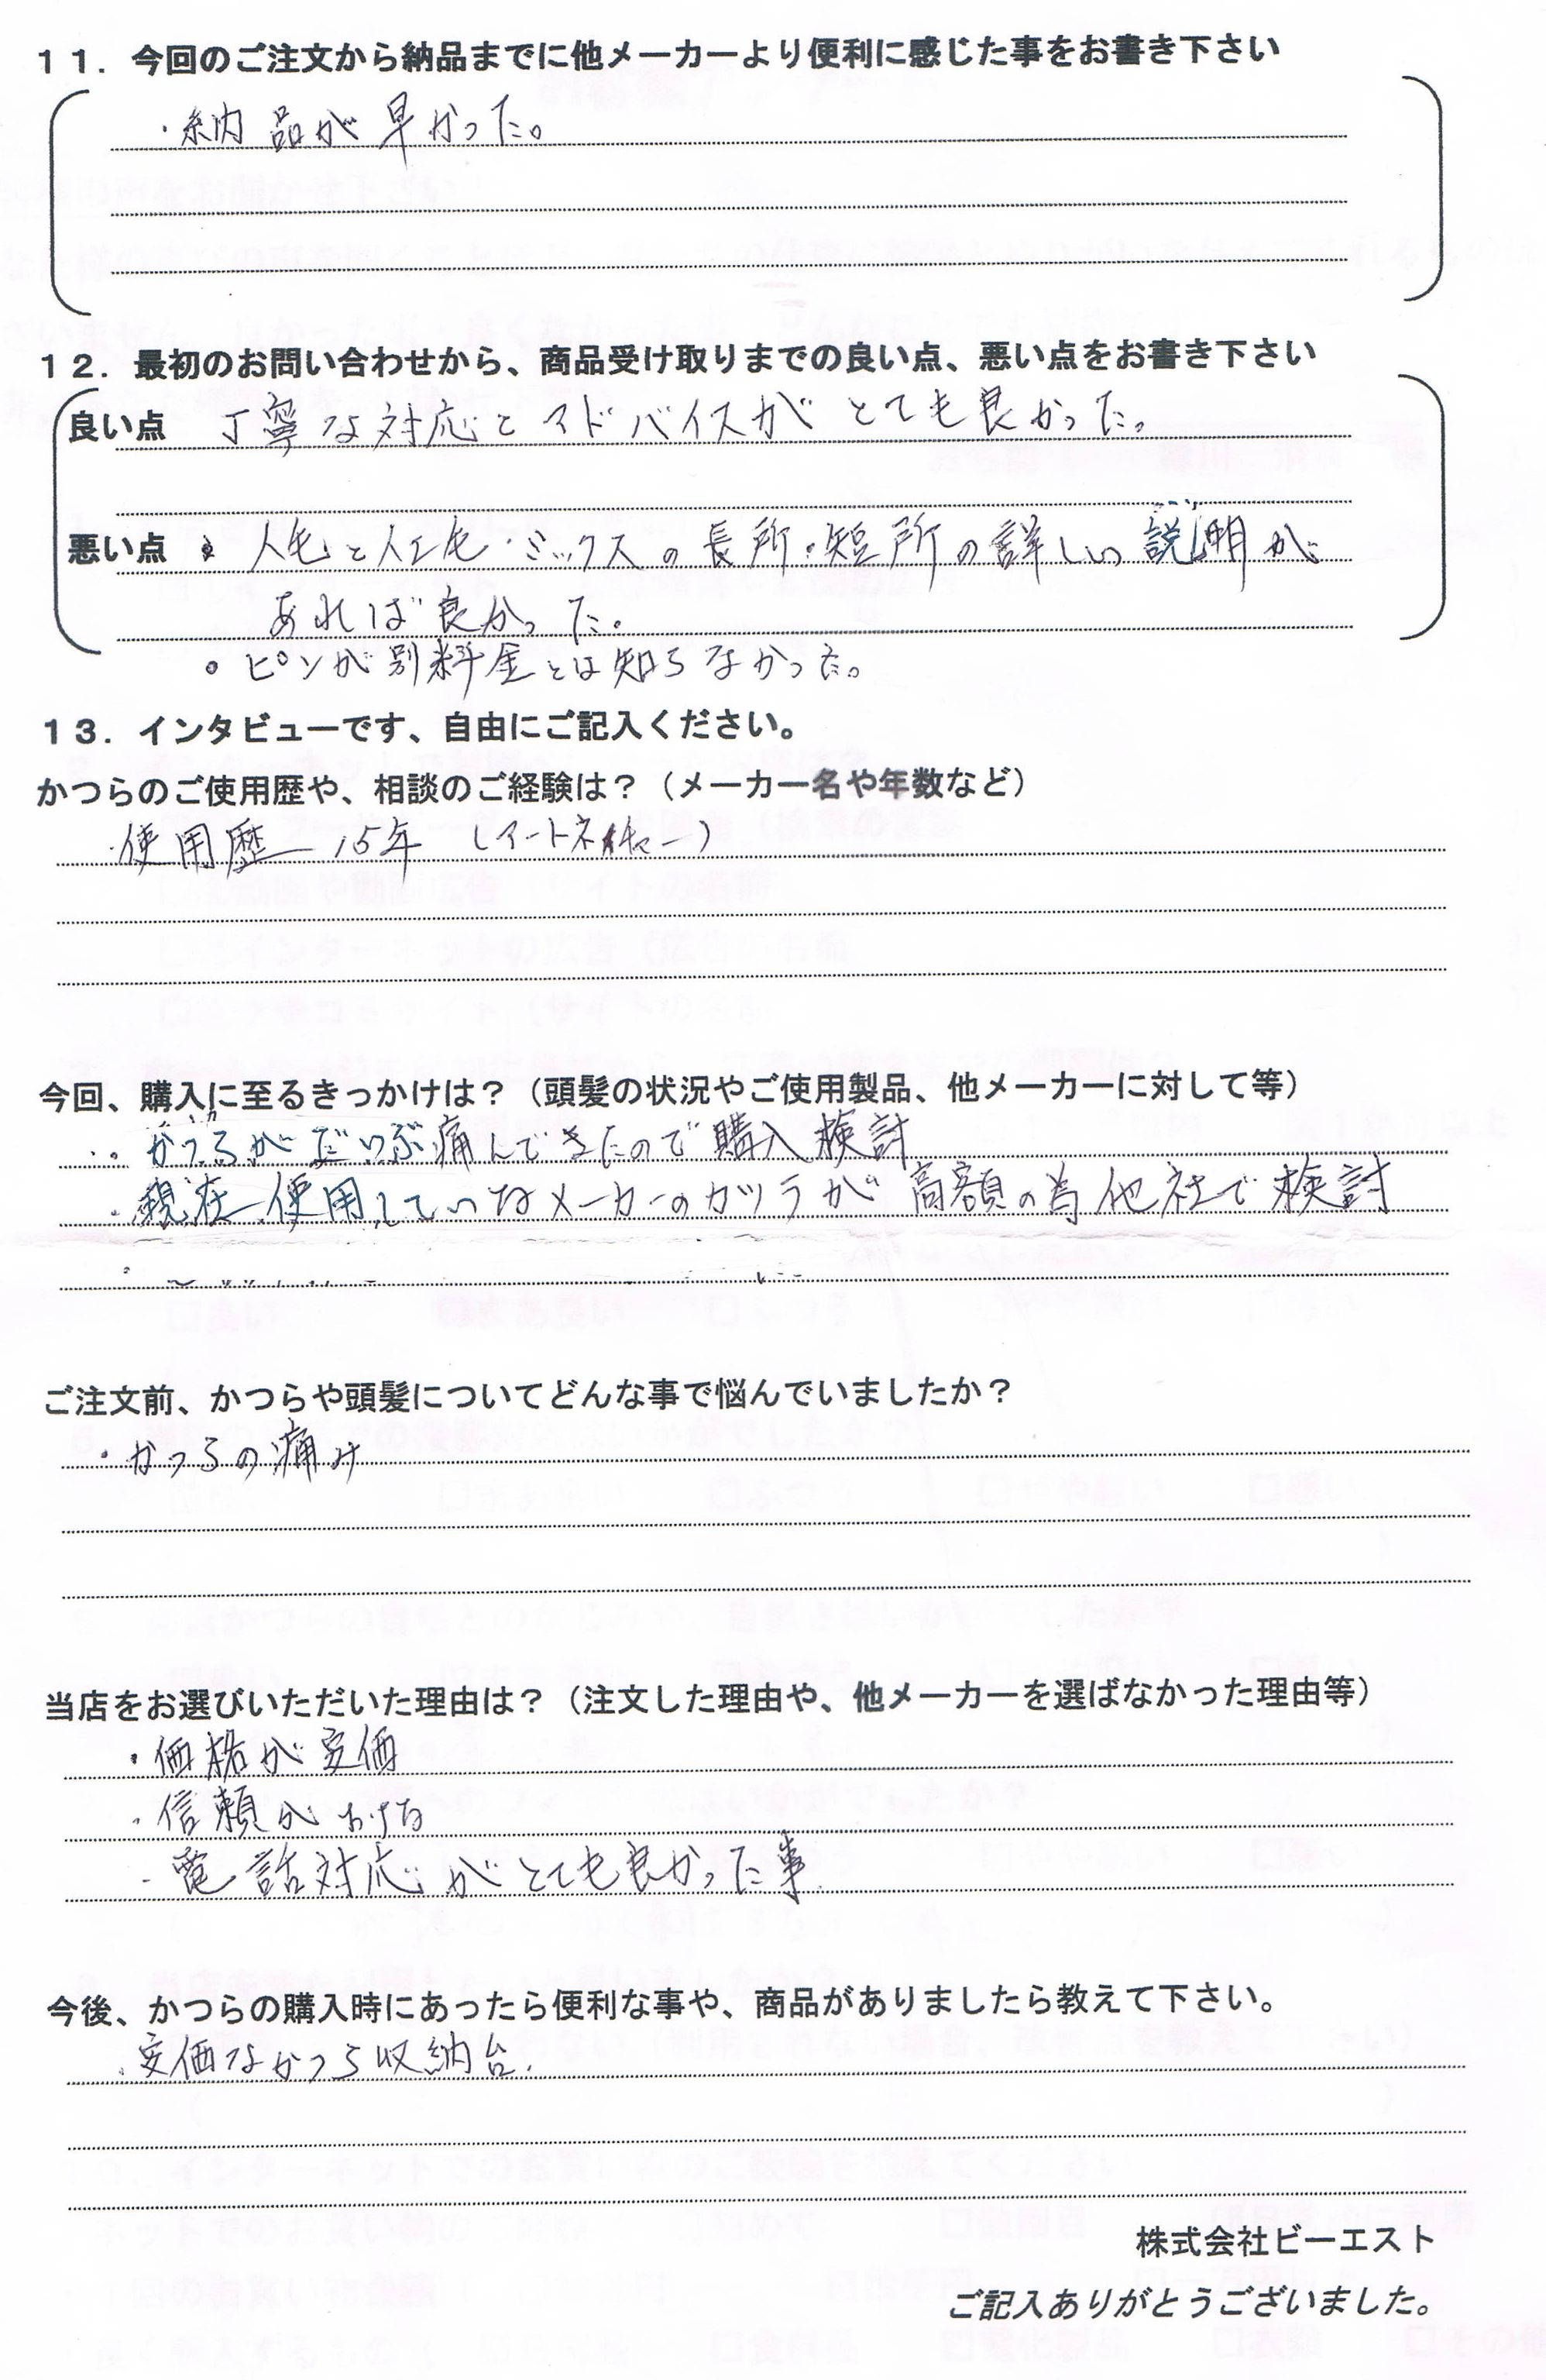 １１．今回のご注文から納品までに他メーカーより便利に感じた事をお書き下さい
・納品が早かった。
１２．最初のお問い合わせから、商品受け取りまでの良い点、悪い点をお書き下さい
良い点　丁寧な対応とアドバイスがとても良かった。
悪い点　・人毛と人工毛・ミックスの長所・短所の詳しい説明が
あれば良かった。
・ピンが別料金とは知らなかった。
１３．インタビューです、自由にご記入ください。
かつらのご使用歴や、相談のご経験は？（メーカー名や年数など）
・使用歴　15年　（アートネイチャー）
今回、購入に至るきっかけは？（頭髪の状況やご使用製品、他メーカーに対して等）
・かつらがだいぶ痛んできたので購入検討
・現在使用しているメーカーのカツラが高額の為他社で検討
ご注文前、かつらや頭髪についてどんな事で悩んでいましたか？
・かつらの痛み
当店をお選びいただいた理由は？（注文した理由や、他メーカーを選ばなかった理由等）
・価格が安価
・信頼がおける
・電話対応がとても良かった事
今後、かつらの購入時にあったら便利な事や、商品がありましたら教えて下さい。
・安価なかつら収納台.
株式会社ビーエスト
ご記入ありがとうございました。